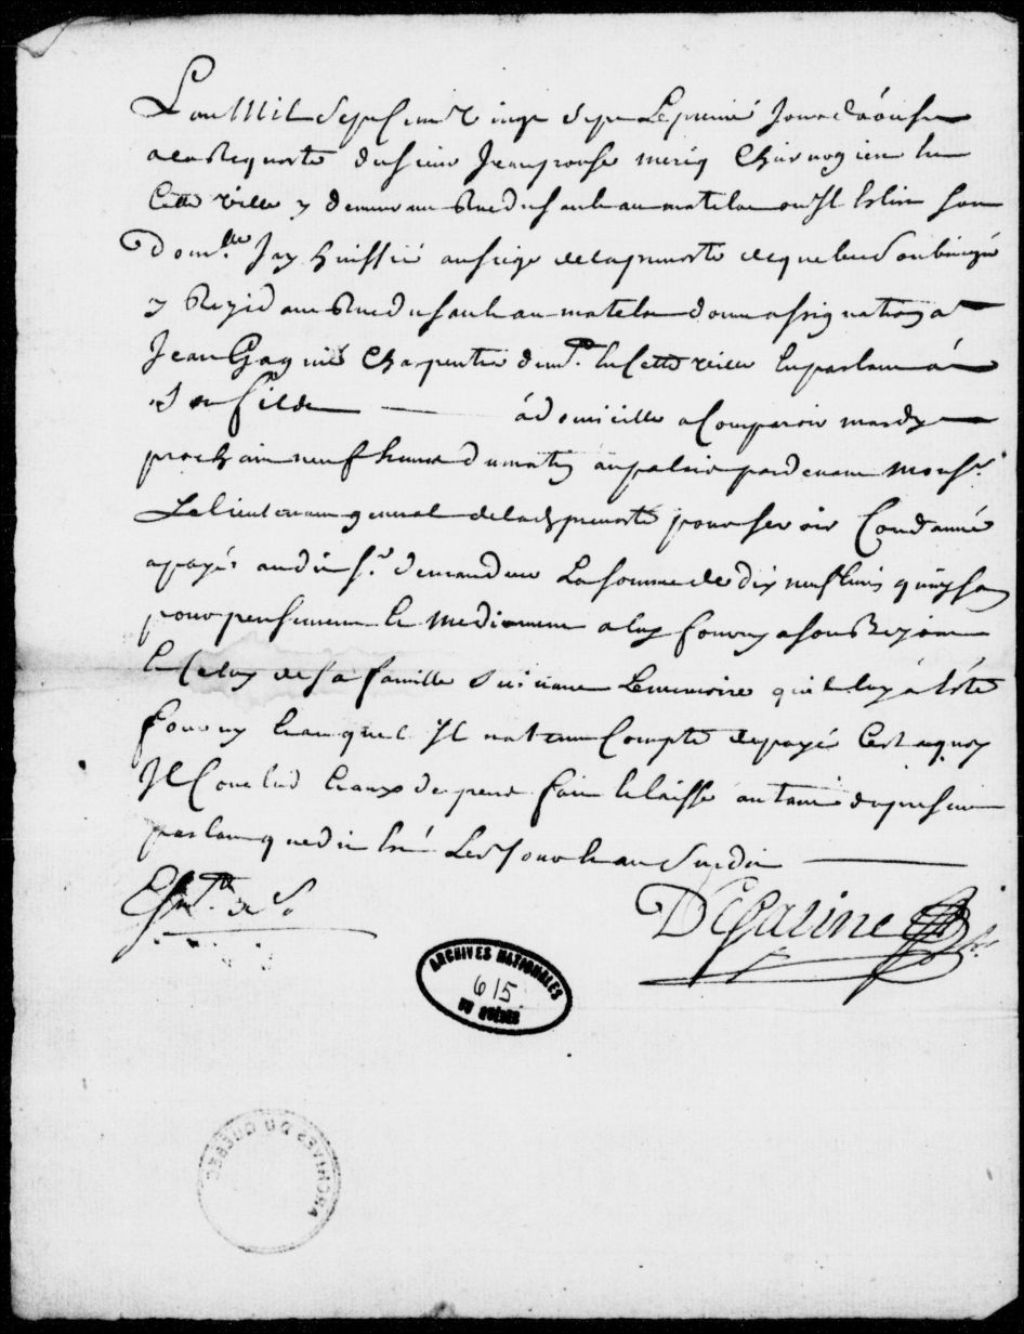 Lan Mil Sept Cent vingt Sept Le premié Jour daoust
a la Requeste du sieur Jean mériq Chirurgien en
Cette ville y demeurant Rue du sault au matelot ou Il Eslit son
Domlle Jay huissié au siege de la prevosté de quebec soubsigné
y Rezidant Rue du sault au matelot donné assignation a
Jean Gagnié Charpentié demt En Cette ville En parlant a
son fils a domicille a Comparoir mardy
prochain neuf heures du matin au palais pardevant Monsr
Le lieutenant general de lad prevosté pour se voir Condamné
a payér audit Sr demandeur La somme de dix neuf livres quinze sols
pour pensement Et Medicament a luy fourny a son Besoin
Et Celuy de sa famille Suivant Le memoire qui luy a Esté
fourny Et auquel Il na tenu Compte de payé Cest a quoy
Il Conclud Et aux depens fait Et laissé autant du present
parlant que dit Est Lesd Jour Et an Susdit
DeGarine
ARCHIVES NATIONALES
615
DU QUÉBEC
ARCHIVES DU QUEBEC